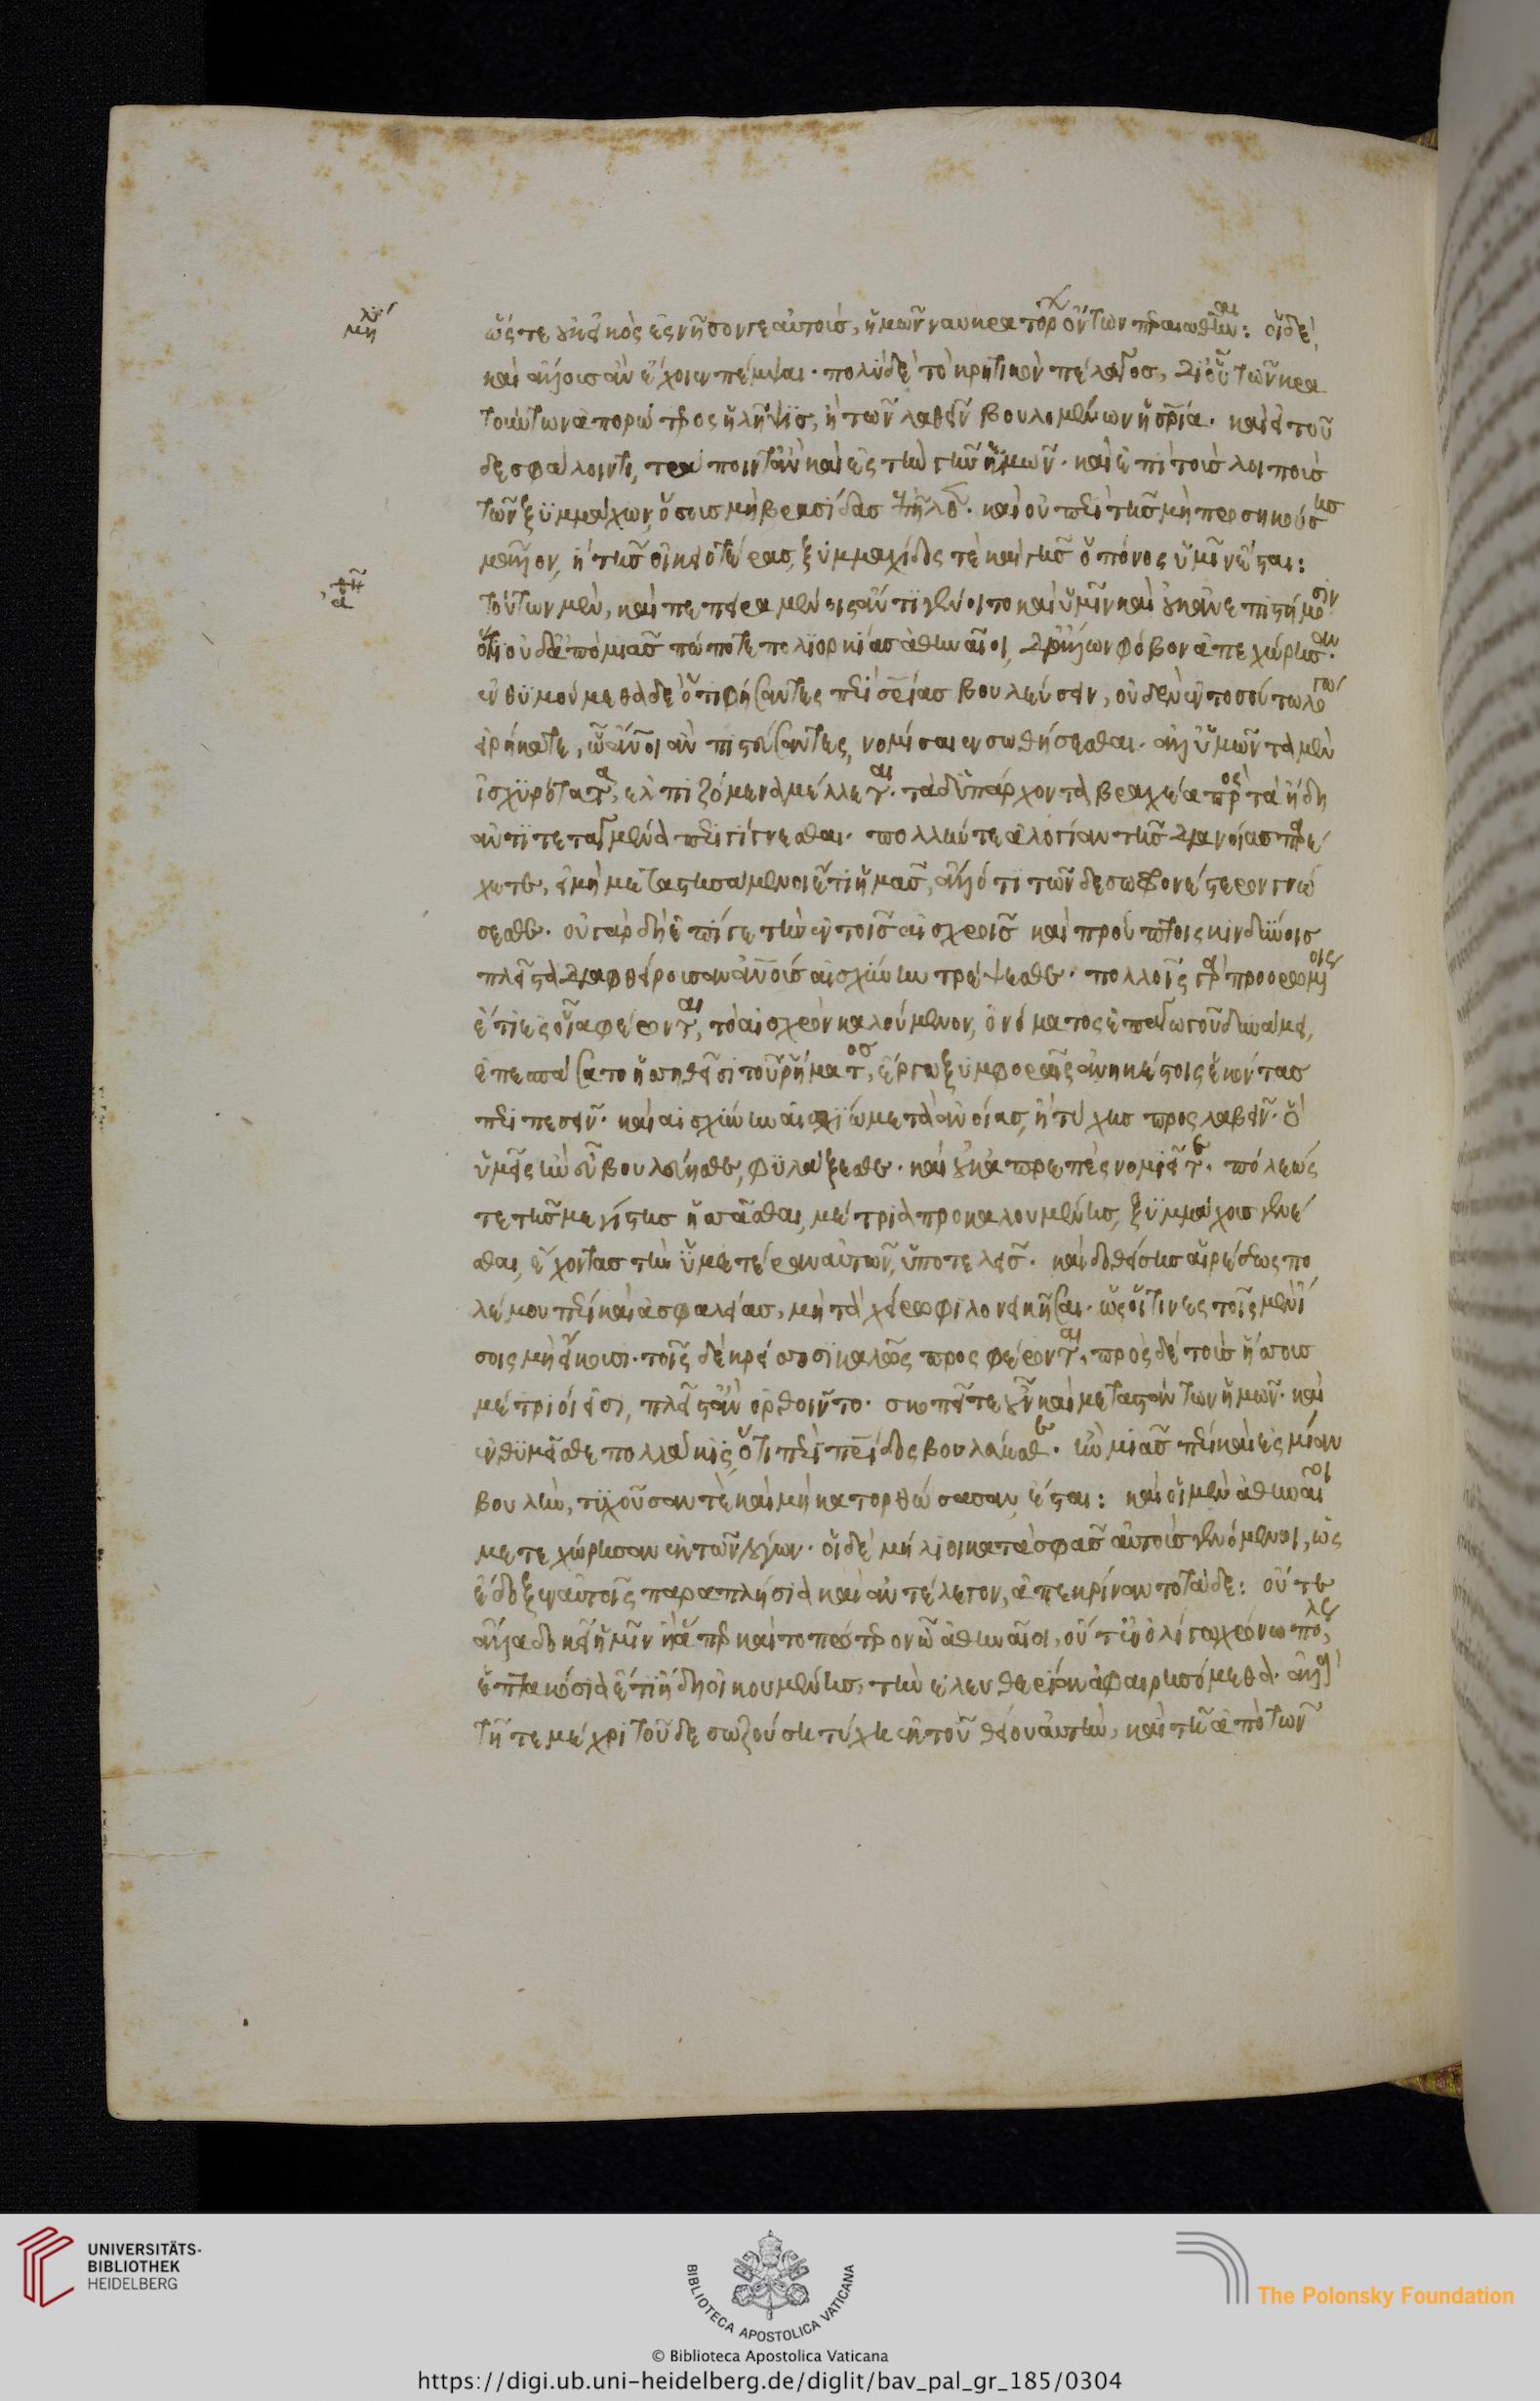 ὥστε οὐκ εἰκὸς ἐς νῆσόν γε αὐτοὺς, ἡμῶν ναυκρατόρων ὄντων περαιωθῆναι: οἱ δὲ
καὶ ἄλλους ἂν ἔχοιεν πέμψαι· πολὺ δὲ τὸ κρητικὸν πέλαγος, δι' οὗ τῶν κρα
τούντων ἀπορώτερος ἡ λῆψις, ἢ τῶν λαθεῖν βουλομένων ἡ σωτηρία· καὶ εἰ τοῦ
δε σφάλοιντο, τράποιντ' ἂν καὶ ἐς τὴν γῆν ὑμῶν· καὶ ἐπὶ τοὺς λοιποὺς
τῶν ξυμμάχων, ὅσους μὴ βρασίδας ἐπῆλθε· καὶ οὐ περὶ τῆς μὴ προσηκούσης
μᾶλλον, ἢ τῆς οἰκειοτέρας, ξυμμαχίδος τε καὶ γῆς ὁ πόνος ὑμῖν ἔσται:
τούτων μὲν, καὶ πεπειραμένοις ἄν τι γένοιτο καὶ ὑμῖν καὶ οὐκ ἀνεπιστήμοσιν
ὅτι οὐδ' ἀπὸ μιᾶς πώποτε πολιορκίας ἀθηναῖοι, δι' ἄλλων φόβον ἀπεχώρησαν·
ἐνθυμούμεθα δὲ ὅτι φήσαντες περὶ σωτηρίας βουλεύσειν, οὐδὲν ἐν τοσούτῳ λόγῳ
εἰρήκατε, ᾧ ἄνθρωποι ἂν πιστεύσαντες, νομίσαιεν σωθήσεσθαι· ἀλλ' ὑμῶν τὰ μὲν
ἰσχυρότατα, ἐλπιζόμενα μέλλεται· τὰ δ' ὑπάρχοντα, βραχέα πρὸς τὰ ἤδη
ἀντιτεταγμένα περιγίγνεσθαι· πολλήν τε ἀλογίαν τῆς διανοίας παρέ
χετε, εἰ μὴ μεταστησάμενοι ἔτι ἡμᾶς, ἄλλό τι τῶνδε σωφρονέστερον γνώ
σεσθε· οὐ γὰρ δὴ ἐπί γε τὴν ἐν τοῖς αἰσχροῖς καὶ προύπτοις κινδύνοις
πλεῖστα διαφθείρουσαν ἀνθρώπους αἰσχύνην τρέψεσθε· πολλοῖς γὰρ προορωμένοις
ἔτι ἐς οἷα φέρονται, τὸ αἰσχρὸν καλούμενον, ὀνόματος ἐπαγωγοῦ δυνάμει,
ἐπεσπάσατο ἡσσηθεῖσι τοῦ ῥήματος, ἔργῳ ξυμφοραῖς ἀνηκέστοις ἑκόντας
περιπεσεῖν· καὶ αἰσχύνην αἰσχίω μετὰ ἀνοίας, ἢ τύχης προσλαβεῖν· ὃ
ὑμεῖς ἢν εὖ βουλεύησθε, φυλάξεσθε· καὶ οὐκ ἀπρεπὲς νομιεῖτε· πόλεώς
τε τῆς μεγίστης ἡσσᾶσθαι, μέτρια προκαλουμένης, ξυμμάχους γενέ
σθαι, ἔχοντας τὴν ὑμετέραν αὐτῶν, ὑποτελεῖς· καὶ δοθείσης αἱρέσεως πο
λέμου περὶ καὶ ἀσφαλείας, μὴ τὰ χείρω φιλονεικῆσαι· ὡς οἵτινες τοῖς μὲν ἴ
σοις μὴ εἴκουσι· τοῖς δὲ κρείσσοσι καλῶς προσφέρονται, πρὸς δὲ τοὺς ἥσσους
μέτριοί εἰσι, πλεῖστ' ἂν ὀρθοῖντο· σκοπεῖτε οὖν καὶ μεταστάντων ἡμῶν· καὶ
ἐνθυμεῖσθε πολλάκις, ὅτι περὶ πατρίδος βουλεύεσθε· ἣν μιᾶς περὶ καὶ ἐς μίαν
βουλὴν, τυχοῦσάν τε καὶ μὴ κατορθώσασαν, ἔσται: καὶ οἱ μὲν ἀθηναῖοι
μετεχώρησαν ἐκ τῶν λόγων· οἱ δὲ μήλιοι κατὰ σφᾶς αὐτοὺς γενόμενοι, ὡς
ἔδοξεν αὐτοῖς παραπλήσια καὶ ἀντέλεγον, ἀπεκρίναντο τάδε: οὔτε
ἄλλα δοκεῖ ἡμῖν ἢ ἅπερ καὶ τὸ πρότερον ὦ ἀθηναῖοι, οὔτ' ἐν ὀλίγῳ χρόνῳ πόλεως
ἑπτακόσια ἔτη ἤδη οἰκουμένης, τὴν ἐλευθερίαν ἀφαιρησόμεθα· ἀλλὰ
τῇ τε μέχρι τοῦδε σωζούσῃ τύχῃ ἐκ τοῦ θείου αὐτὴν, καὶ τῇ ἀπὸ τῶν
μήλι
ἀθη
UNIVERSITÄTS-
BIBLIOTHEK
HEIDELBERG
BIBLIOTECA APOSTOLICA VATICANA
The Polonsky Foundation
© Biblioteca Apostolica Vaticana
https://digi.ub.uni-heidelberg.de/diglit/bav_pal_gr_185/0304